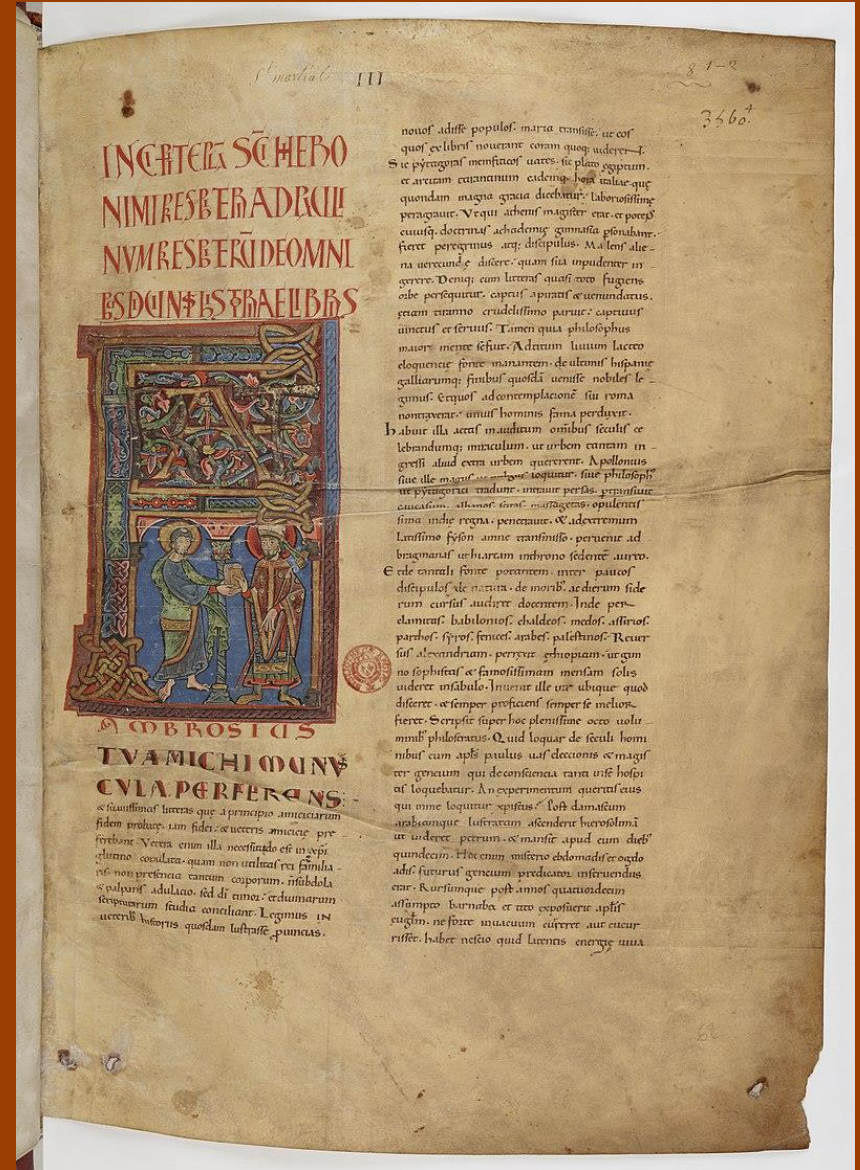 St martial
III
8 1-2
3560
INCIPIT EPLA SCI HERO
NIMI PRESBITERI AD PAULI
NVM PRESBITERŪ DE OMNI
BUS DIVINIS HISTORIAE LIBRIS
AMBROSIUS
TVA MICHI MUNUS
CVLA PERFERENS:
& suauissimas litteras que a principio amiciciarum
fidem probate iam fidei & ueteris amicicie pre
ferebant. Vetera enim illa necessitudo est in xpi
glutino copulata. quam non utilitas rei familia
ris. non presencia tantum corporum. n subdola
& palpans adulacio. sed di timor. et diuinarum
scripturarum studia conciliant. Legimus IN
ueterib historiis quosdam lustrasse puincias.
nouos adisse populos. maria transisse. ut eos
quos ex libris nouerant coram quoq; uiderent.
Sic pytagoras memfiticos uates. sic plato egiptum.
et arcitam tarantinum eademq; hora italiae que
quondam magna gracia dicebatur. laboriosissime
peragrauit. Vt qui athenis magister erat. et potens
cuiusq. doctrinas achademie gimnasia psonabant.
fieret peregrinus atq; discipulus. Malens alie
na uerecunde discere. quam sua inpudenter in
gerere. Deniq; cum litteras quasi toto fugiens
orbe persequitur. captus a piratis & uenundatus.
etiam tiranno crudelissimo paruit. captiuus
uinctus et seruus. Tamen quia philosophus
maior emente se fuit. Ad titum liuium lacteo
eloquencie fonte manantem. de ultimis hispanie
galliarumq; finibus quosdā uenisse nobiles le
gimus. Et quos ad contemplacionē sui roma
non traxerat. unius hominis fama perduxit.
habuit illa aetas inauditum omibus seculis ce
lebrandumq; miraculum. ut urbem tantam in
gressi aliud extra urbem quererent. Apollonius
siue ille magus ut uulgus loquitur. siue philosoph
ut pytagorici tradunt. intrauit persas. ptransiuit
caucasum. albanos scitas massagetas. opulentis
sima indie regna. penetrauit. & ad extremum
latissimo fyson amne transmisso. peruenit ad
bragmanas ut hiarcam in throno sedentē aureo.
Et de tantali fonte potantem. inter paucos
discipulos de natura. de morib. ac dierum side
rum cursus audiret docentem. Inde per
elamitas. babilonios. chaldeos. medos. assirios.
parthos. syros. fenices. arabes. palestinos. Reuer
sus alexandriam. perrexit ethiopiam. ut gim
no sophistas & famosissimam mensam solis
uideret in sabulo. Inuenit ille uir ubique quod
disceret. & semper proficiens semper se melior
fieret. Scripsit super hoc plenissime octo uolu
minib philostratus. Quid loquar de seculi homi
nibus cum apls paulus uas eleccionis & magis
ter gencium qui de consciencia tanti in se hospi
tis loquebatur. An experimentum queritis eius
qui in me loquitur xpistus. Post damascum
arabiamque lustratam ascenderit hierosolimā
ut uideret petrum. & mansit apud eum dieb
quindecim. Hoc enim misterio ebdomadis et ogdo
adis. futurus gencium predicator instruendus
erat. Rursumque post annos quatuordecim
assumpto barnaba et tito exposuerit aplis
euglm. ne forte in uacuum curreret aut cucur
risset. habet nescio quid latentis energie uiua